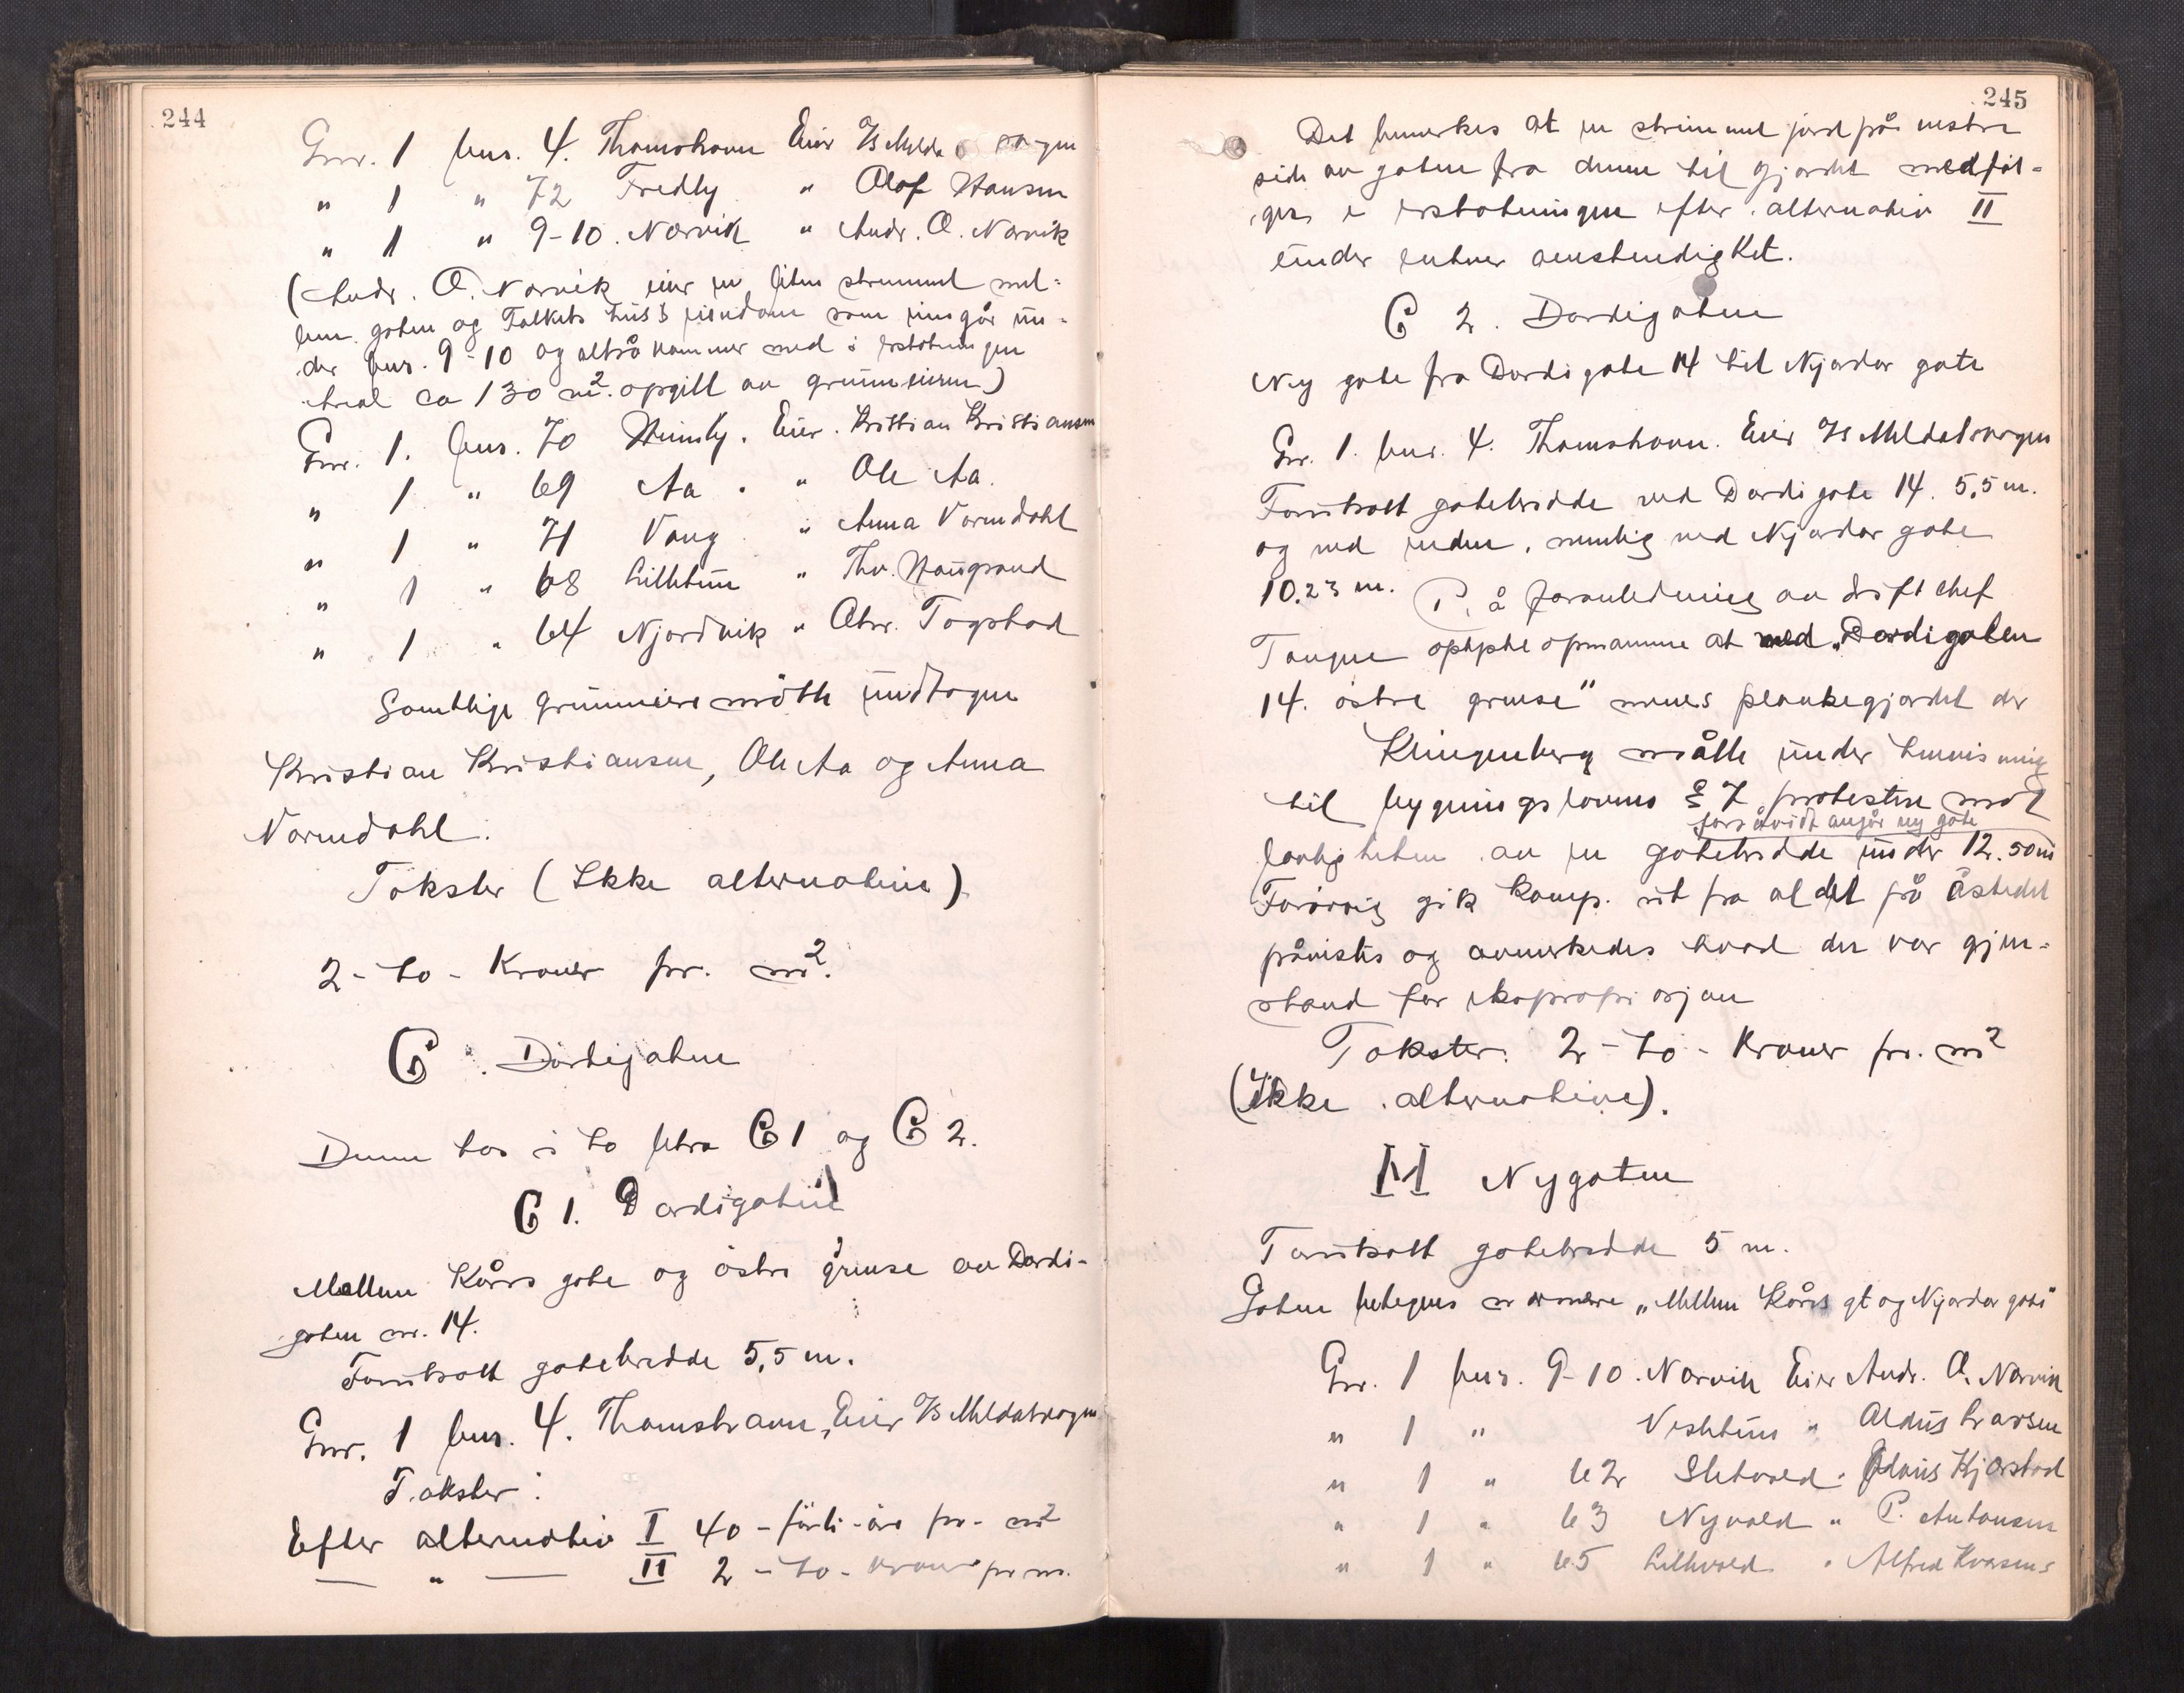 244
Gnr. 1 bnr. 4. Thamshavn Eier A/S Meldalskogen
" 1 " 72 Fredly " Olaf Hansen
" 1 " 9-10. Narvik " Andr. O. Narvik
(Andr. O. Narvik eier en liten strimmel mel-
lem gaten og Folkets hus's eiendom som inngår un-
der bnr. 9-10 og altså kommer med i erstatningen
Areal ca 130 m². opgitt av grunneieren)
Gnr. 1. bnr. 70 Heimly. Eier. Kristian Kristiansen
" 1 " 69 Aa . " Ole Aa.
" 1 " 71 Vang " Anna Vormdahl
" 1 " 68 Lilletun " Thv. Haugrand
" 1 " 64 Njardvik " Ahr. Togstad
Samtlige grunneiere møtte undtagen
Kristian Kristiansen, Ole Aa og Anna
Vormdahl.
Takster (Ikke alternative)
2 - to - Kroner pr. m².
C . Dardigaten
Denne tas i to – C 1 og C 2.
C 1. Dardigaten
Mellem Kårs gate og østre grense av Dardi-
gaten nr. 14.
Forutsatt gatebredde 5,5 m.
Gnr. 1 bnr. 4. Thamshavn, Eier A/S Meldalskogen
Takster:
Efter alternativ I 40 - førti - øre pr. m²
— " — II 2 - to - kroner pr m.
245
Det bemerkes at en strimmel jord på vestre
side av gaten fra denne til gjerdet medføl-
ges i erstatningen efter alternativ II
under enhver omstendighet.
C 2. Dardigaten
Ny gate fra Dardigate 14 til Njardar gate
Gnr. 1. bnr. 4. Thamshavn. Eier A/S Meldalskogen
Forutsatt gatebredde ved Dardigate 14. 5,5 m.
og ved enden, nemlig ved Njardar gate
10.23 m. På foranledning av driftchef
Tangen oplyste opmannen at med „Dardigaten
14. østre grense" menes plankegjerdet der
Klingenberg måtte under henvisning
til bygningslovens § 7 protestere mot
forsåvidt angår ny gate
lovligheten av en gatebredde under 12.50 m
Forøvrig gik komp. ut fra at det på åstedet
påvistes og avmerkedes hvad der var gjen-
stand for ekspropriasjon
Takster: 2 - to - Kroner pr. m²
(Ikke alternative).
III Nygaten
Forutsatt gatebredde 5 m.
Gaten betegnes nærmere „Mellem Kårs gt og Njardar gate"
Gnr. 1 bnr. 9-10. Narvik Eier Andr. O. Narvik
" 1 " Vesletun " Aldus Larsen
" 1 " 62 Sletvold " Kjørstad
" 1 " 63 Nyvold " P. Antonsen
" 1 " 65 Lillevold " Alfred Kvasnes